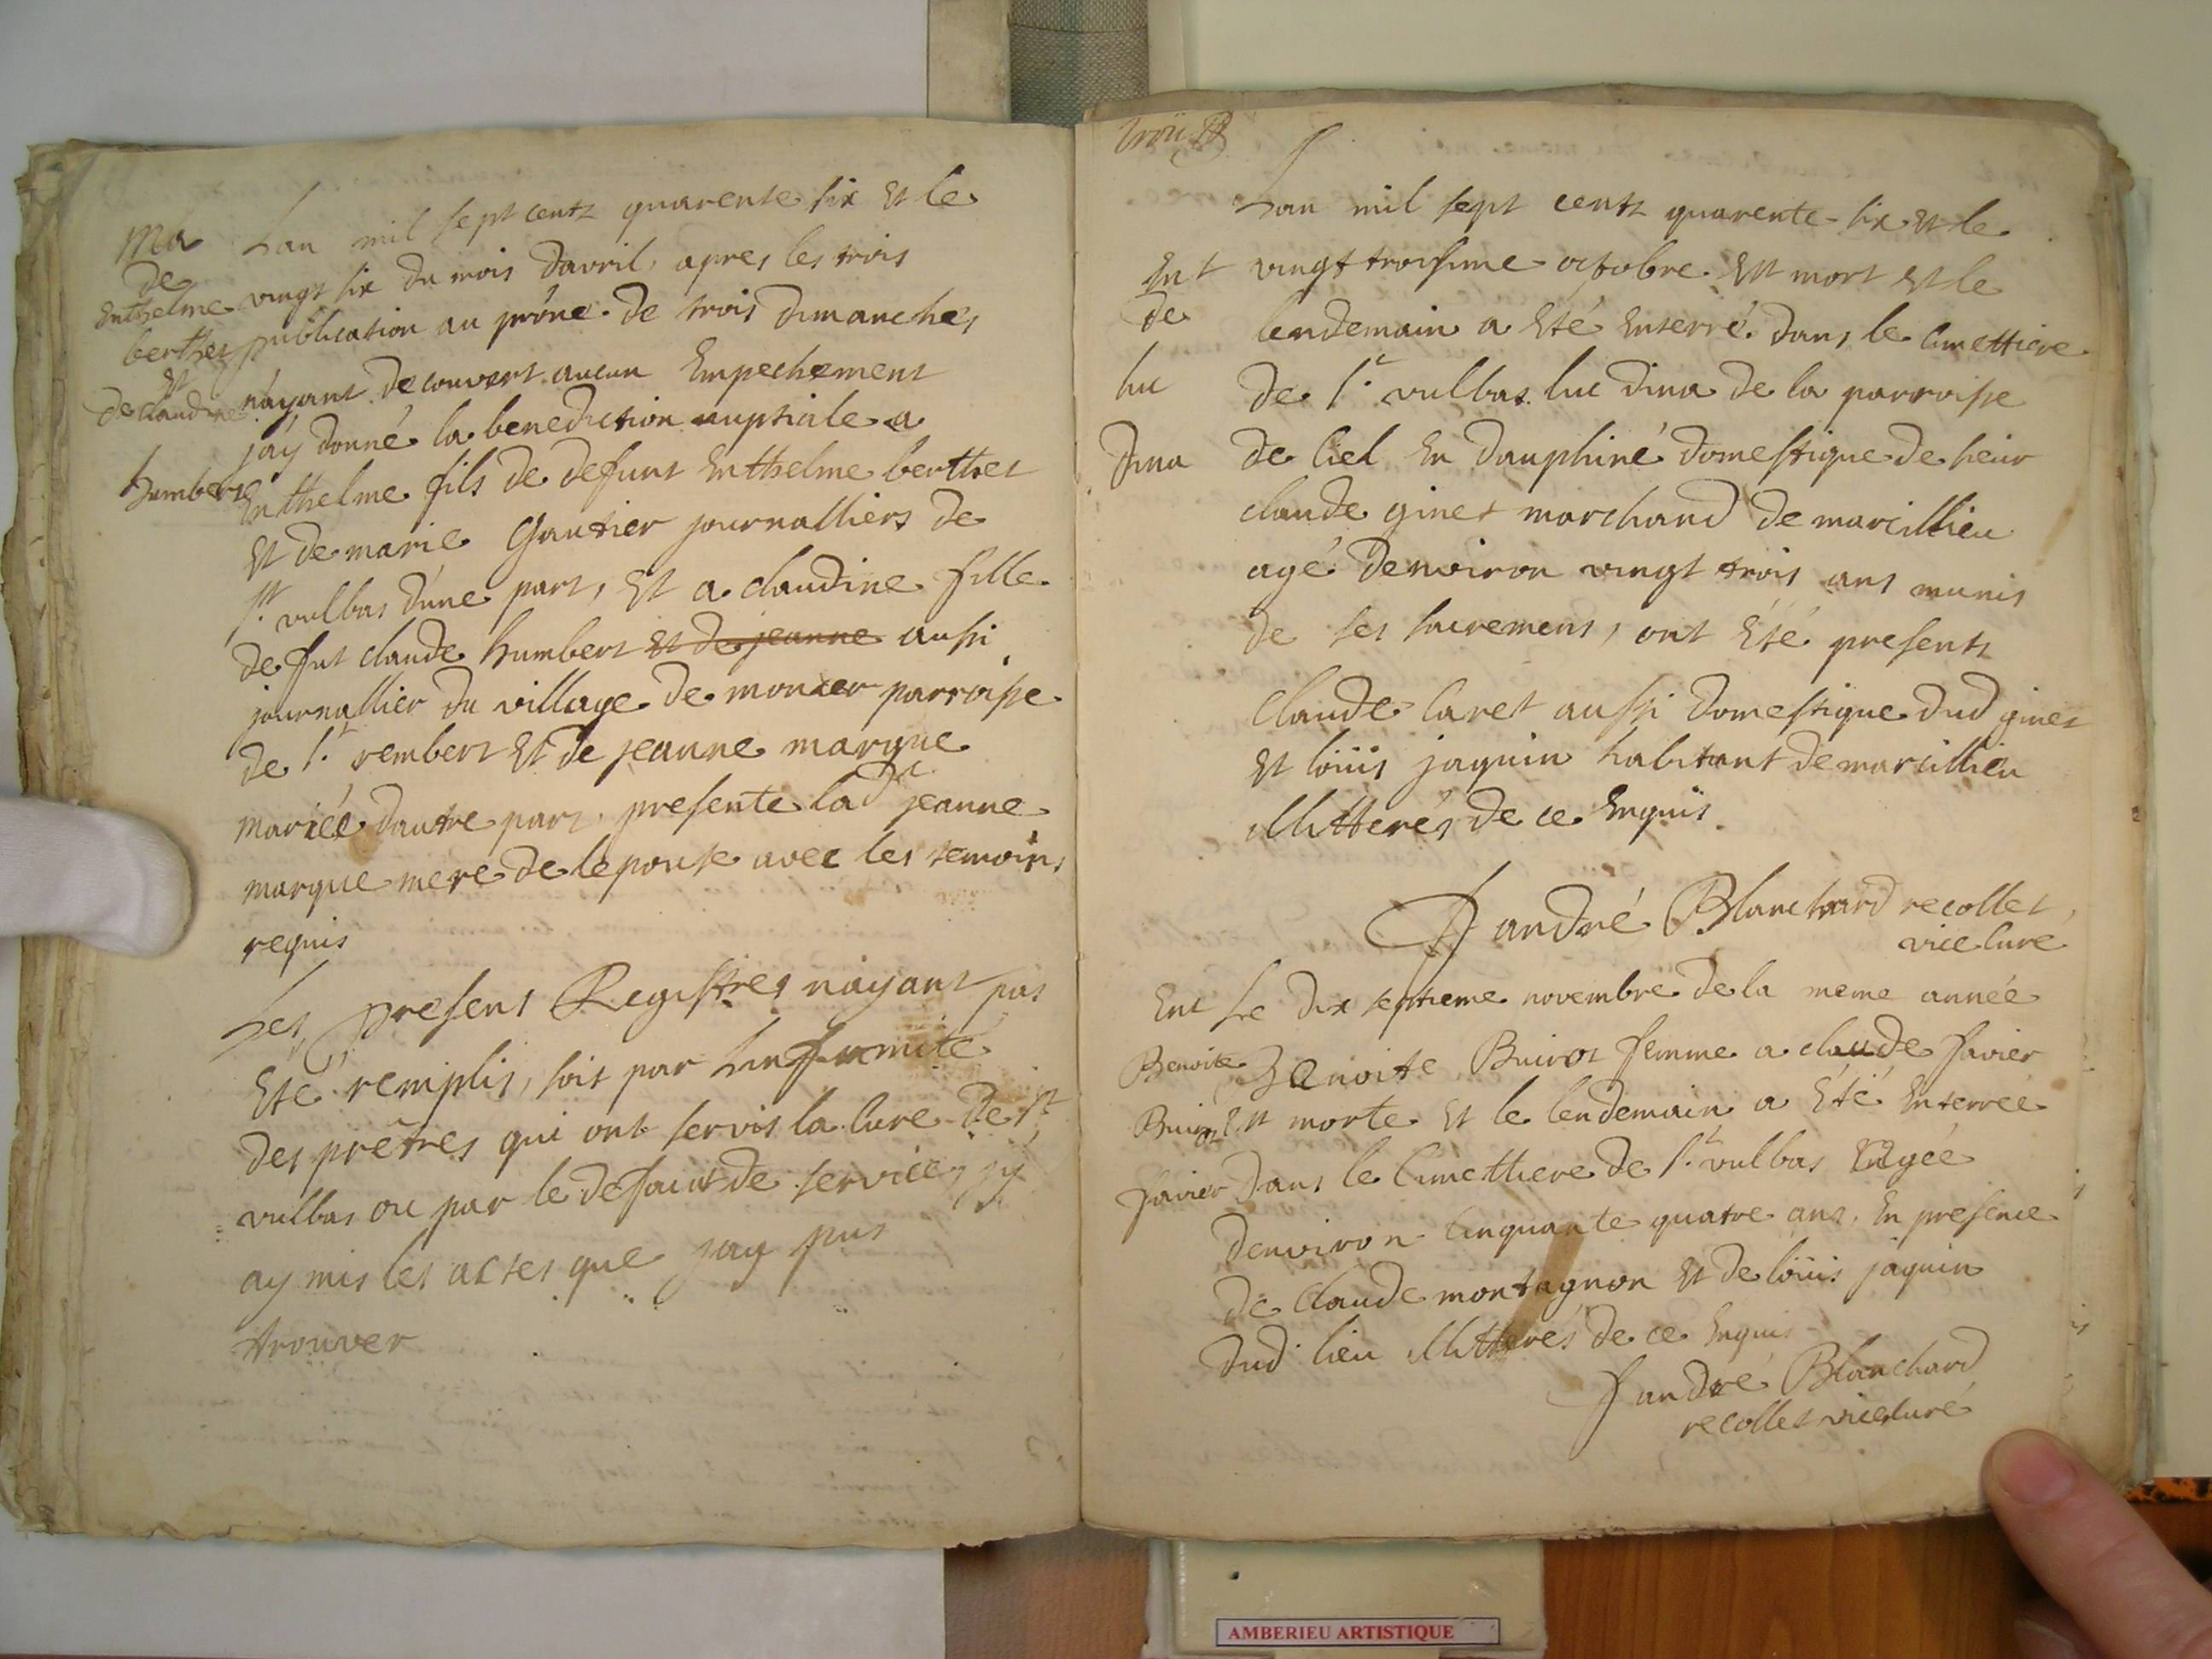 Ma
de
Enthelme
berthet
Et
de claudine
humbert
Lan mil sept centz quarente six Et le
vingt six du mois davril, apres les trois
publication au prône de trois dimanches
n'ayant decouvert aucun Empechement
j'ay donné la benediction nuptiale a
Enthelme fils de defunt Enthelme berthet
Et de marie Gautier journalliers de
st. vulbas d'une part, Et a claudine fille
de fut claude humbert et de jeanne aussi
journallier du village de moncer parroisse
de st. rembert Et de jeanne marque
mariée dautre part, presente lade jeanne
marque mere de lepouse avec les temoins
requis
Les presens Registres n'ayant pas
Eté remplis, soit par Linfirmité
des prêtres qui ont servis la Cure de st
vulbas ou par le defaut de service, jy
ay mis les actes que jay pus
trouver
trois
Ent
de
luc
dina
Lan mil sept centz quarente-six et le
vingt troisieme octobre Est mort Et le
lendemain a Eté Enterré dans le Cimettiere
de st. vulbas luc dina de la parroisse
de Ciel En dauphiné domestique de sieur
claude ginet marchand de marcillieu
agé denviron vingt trois ans munis
de ses sacremens, ont Eté presents
Claude Caret aussi domestique dud ginet
Et loüis jaquin habitant de marcillieu
illitterés de ce Enquis.
f andré Blanchard recollet
vice Curé
Ent
Benoite
Buirot
favier
Le dix septieme novembre de la meme année
Benoite Buirot femme a claude favier
Est morte Et le lendemain a Eté Enterrée
dans le Cimettiere de st. vulbas agée
denviron Cinquante quatre ans, En presence
de Claude montagnon Et de loüis jaquin
dud. lieu illitterés de ce Enquis
f andré Blanchard
recollet vice curé
AMBERIEU ARTISTIQUE